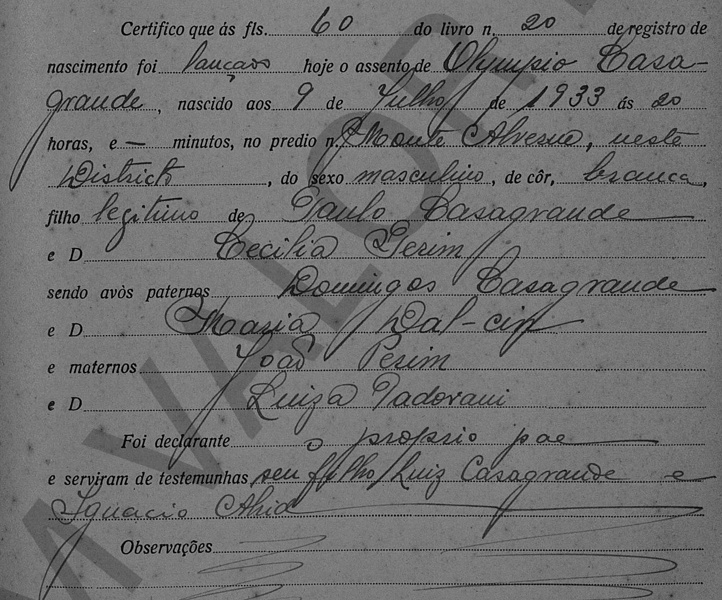 Certifico que ás fls. 60 do livro n. 20 de registro de
nascimento foi lançado hoje o assento de Olympio Casa-
grande, nascido aos 9 de Julho de 1933 ás 20
horas, e — minutos, no predio n. Monte Alverne, neste
Districto, do sexo masculino, de côr, branca,
filho legitimo de Paulo Casagrande
e D. Cecilia Perim
sendo avòs paternos Domingos Casagrande
e D. Maria Dal-cin
e maternos João Perim
e D. Luiza Padovani
Foi declarante o proprio pae
e serviram de testemunhas seu filho Luiz Casagrande e
Ignacio
Observações
VALOR